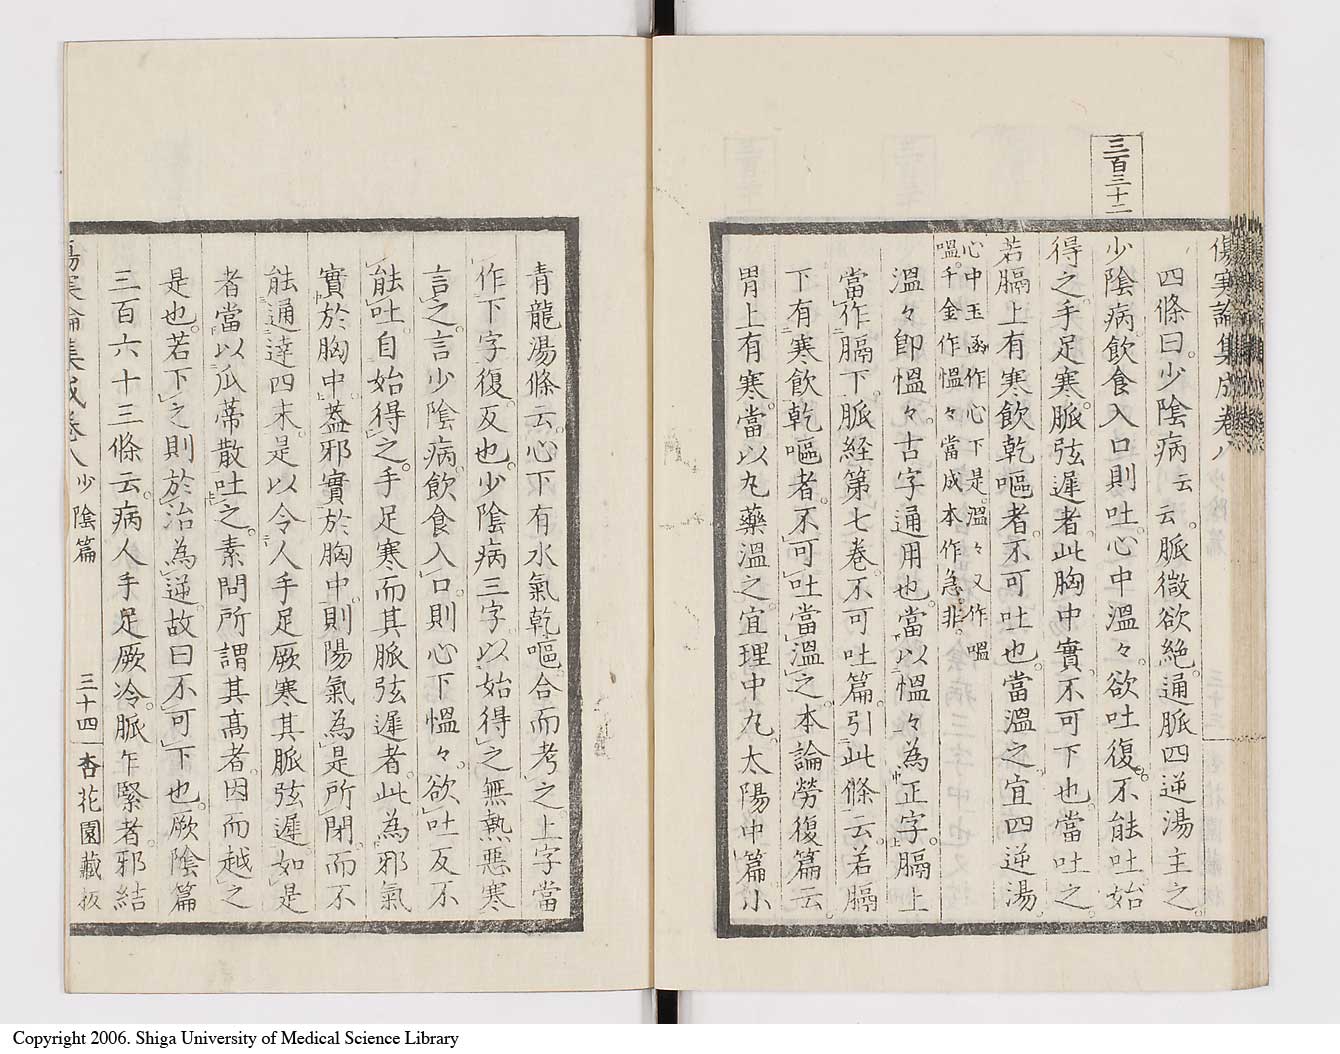 三百三十二
傷寒論集成卷八
四條曰。少陰病云云。脈微欲絶。通脈四逆湯主之。
少陰病。飲食入口則吐。心中溫々。欲吐復不能吐。始
得之。手足寒。脈弦遲者。此胸中實。不可下也。當吐之。
若膈上有寒飲乾嘔者。不可吐也。當溫之。宜四逆湯。
心中玉函作心下是。溫々又作嗢
嗢。千金作愠々。當成本作急。非。
溫々卽愠々。古字通用也。當以愠々為正字。膈上
當作膈下。脈経第七卷。不可吐篇引此條云。若膈
下有寒飲乾嘔者。不可吐當溫之。本論勞復篇云。
胃上有寒。當以丸藥溫之。宜理中丸。太陽中篇小
青龍湯條云。心下有水氣乾嘔。合而考之。上字當
作下字。復反也。少陰病三字。以始得之無熱惡寒
言之。言少陰病。飲食入口則心下愠々。欲吐反不
能吐。自始得之。手足寒而其脈弦遲者。此為邪氣
實於胸中。蓋邪實於胸中。則陽氣為是所閉。而不
能通達四末。是以令人手足厥寒其脈弦遲。如是
者當以瓜蒂散吐之。素問所謂其高者。因而越之
是也。若下之則於治為逆。故曰不可下也。厥陰篇
三百六十三條云。病人手足厥冷。脈乍緊者。邪結
傷寒論集成卷八 少陰篇 三十四 杏花園藏板